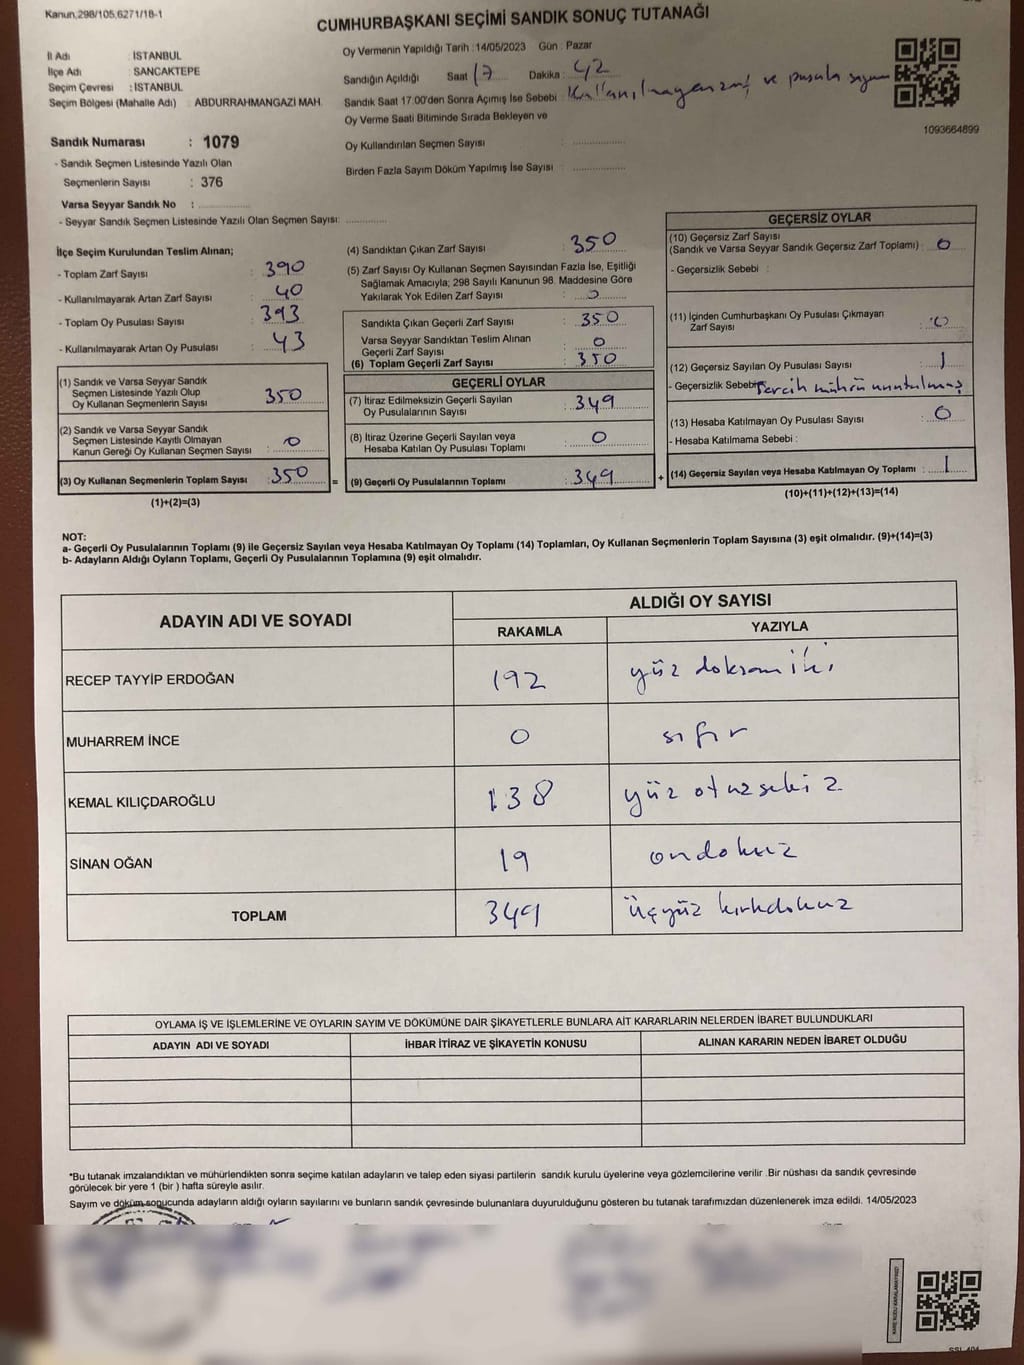 Kanun,298/105,6271/18-1
CUMHURBAŞKANI SEÇİMİ SANDIK SONUÇ TUTANAĞI
İl Adı : İSTANBUL
İlçe Adı : SANCAKTEPE
Seçim Çevresi : İSTANBUL
Seçim Bölgesi (Mahalle Adı) : ABDURRAHMANGAZİ MAH.
Oy Vermenin Yapıldığı Tarih : 14/05/2023 Gün : Pazar
Sandığın Açıldığı Saat 17 Dakika : 42
Sandık Saat 17.00'den Sonra Açımış İse Sebebi : Kullanılmayan zarf ve pusula sayımı
Oy Verme Saati Bitiminde Sırada Bekleyen ve
Oy Kullandırılan Seçmen Sayısı :
Birden Fazla Sayım Döküm Yapılmış İse Sayısı :
1093664899
Sandık Numarası : 1079
- Sandık Seçmen Listesinde Yazılı Olan
Seçmenlerin Sayısı : 376
Varsa Seyyar Sandık No :
- Seyyar Sandık Seçmen Listesinde Yazılı Olan Seçmen Sayısı:
İlçe Seçim Kurulundan Teslim Alınan;
- Toplam Zarf Sayısı : 390
- Kullanılmayarak Artan Zarf Sayısı : 40
- Toplam Oy Pusulası Sayısı : 393
- Kullanılmayarak Artan Oy Pusulası : 43
(1) Sandık ve Varsa Seyyar Sandık
Seçmen Listesinde Yazılı Olup
Oy Kullanan Seçmenlerin Sayısı : 350
(2) Sandık ve Varsa Seyyar Sandık
Seçmen Listesinde Kayıtlı Olmayan
Kanun Gereği Oy Kullanan Seçmen Sayısı : 0
(3) Oy Kullanan Seçmenlerin Toplam Sayısı : 350
(1)+(2)=(3)
(4) Sandıktan Çıkan Zarf Sayısı : 350
(5) Zarf Sayısı Oy Kullanan Seçmen Sayısından Fazla İse, Eşitliği
Sağlamak Amacıyla; 298 Sayılı Kanunun 98. Maddesine Göre
Yakılarak Yok Edilen Zarf Sayısı : 0
Sandıkta Çıkan Geçerli Zarf Sayısı : 350
Varsa Seyyar Sandıktan Teslim Alınan
Geçerli Zarf Sayısı : 0
(6) Toplam Geçerli Zarf Sayısı : 350
GEÇERLİ OYLAR
(7) İtiraz Edilmeksizin Geçerli Sayılan
Oy Pusulalarının Sayısı : 349
(8) İtiraz Üzerine Geçerli Sayılan veya
Hesaba Katılan Oy Pusulası Toplamı : 0
= (9) Geçerli Oy Pusulalarının Toplamı : 349 +
GEÇERSİZ OYLAR
(10) Geçersiz Zarf Sayısı
(Sandık ve Varsa Seyyar Sandık Geçersiz Zarf Toplamı) : 0
- Geçersizlik Sebebi :
(11) İçinden Cumhurbaşkanı Oy Pusulası Çıkmayan
Zarf Sayısı : 0
(12) Geçersiz Sayılan Oy Pusulası Sayısı : 1
- Geçersizlik Sebebi Tercih mührü unutulmuş
(13) Hesaba Katılmayan Oy Pusulası Sayısı : 0
- Hesaba Katılmama Sebebi :
(14) Geçersiz Sayılan veya Hesaba Katılmayan Oy Toplamı : 1
(10)+(11)+(12)+(13)=(14)
NOT:
a- Geçerli Oy Pusulalarının Toplamı (9) ile Geçersiz Sayılan veya Hesaba Katılmayan Oy Toplamı (14) Toplamları, Oy Kullanan Seçmenlerin Toplam Sayısına (3) eşit olmalıdır. (9)+(14)=(3)
b- Adayların Aldığı Oyların Toplamı, Geçerli Oy Pusulalarının Toplamına (9) eşit olmalıdır.
ADAYIN ADI VE SOYADI ALDIĞI OY SAYISI
RAKAMLA YAZIYLA
RECEP TAYYİP ERDOĞAN 192 yüz doksan iki
MUHARREM İNCE 0 sıfır
KEMAL KILIÇDAROĞLU 138 yüz otuzsekiz
SİNAN OĞAN 19 ondokuz
TOPLAM 349 üçyüz kırkdokuz
OYLAMA İŞ VE İŞLEMLERİNE VE OYLARIN SAYIM VE DÖKÜMÜNE DAİR ŞİKAYETLERLE BUNLARA AİT KARARLARIN NELERDEN İBARET BULUNDUKLARI
ADAYIN ADI VE SOYADI İHBAR İTİRAZ VE ŞİKAYETİN KONUSU ALINAN KARARIN NEDEN İBARET OLDUĞU
*Bu tutanak imzalandıktan ve mühürlendikten sonra seçime katılan adayların ve talep eden siyasi partilerin sandık kurulu üyelerine veya gözlemcilerine verilir .Bir nüshası da sandık çevresinde
görülecek bir yere 1 (bir ) hafta süreyle asılır.
Sayım ve döküm sonucunda adayların aldığı oyların sayılarını ve bunların sandık çevresinde bulunanlara duyurulduğunu gösteren bu tutanak tarafımızdan düzenlenerek imza edildi. 14/05/2023